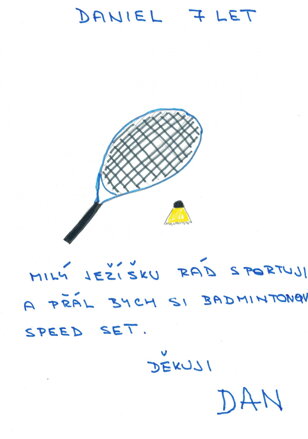 DANIEL 7 LET
MILÝ JEŽÍŠKU RÁD SPORTUJI
A PŘÁL BYCH SI BADMINTONOV
SPEED SET.
DĚKUJI
DAN